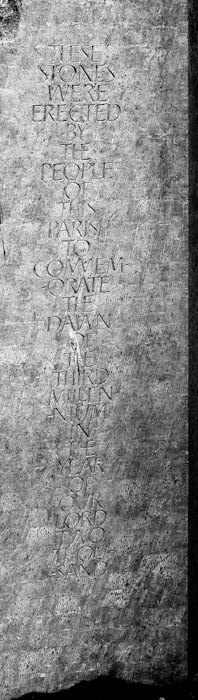 THESE
STONES
WERE
ERECTED
BY
THE
PEOPLE
OF
THIS
PARISH
TO
COMMEM-
ORATE
THE
DAWN
OF
THE
THIRD
MILLEN-
NIUM
IN
THE
YEAR
OF
OUR
LORD
TWO
THOU-
SAND